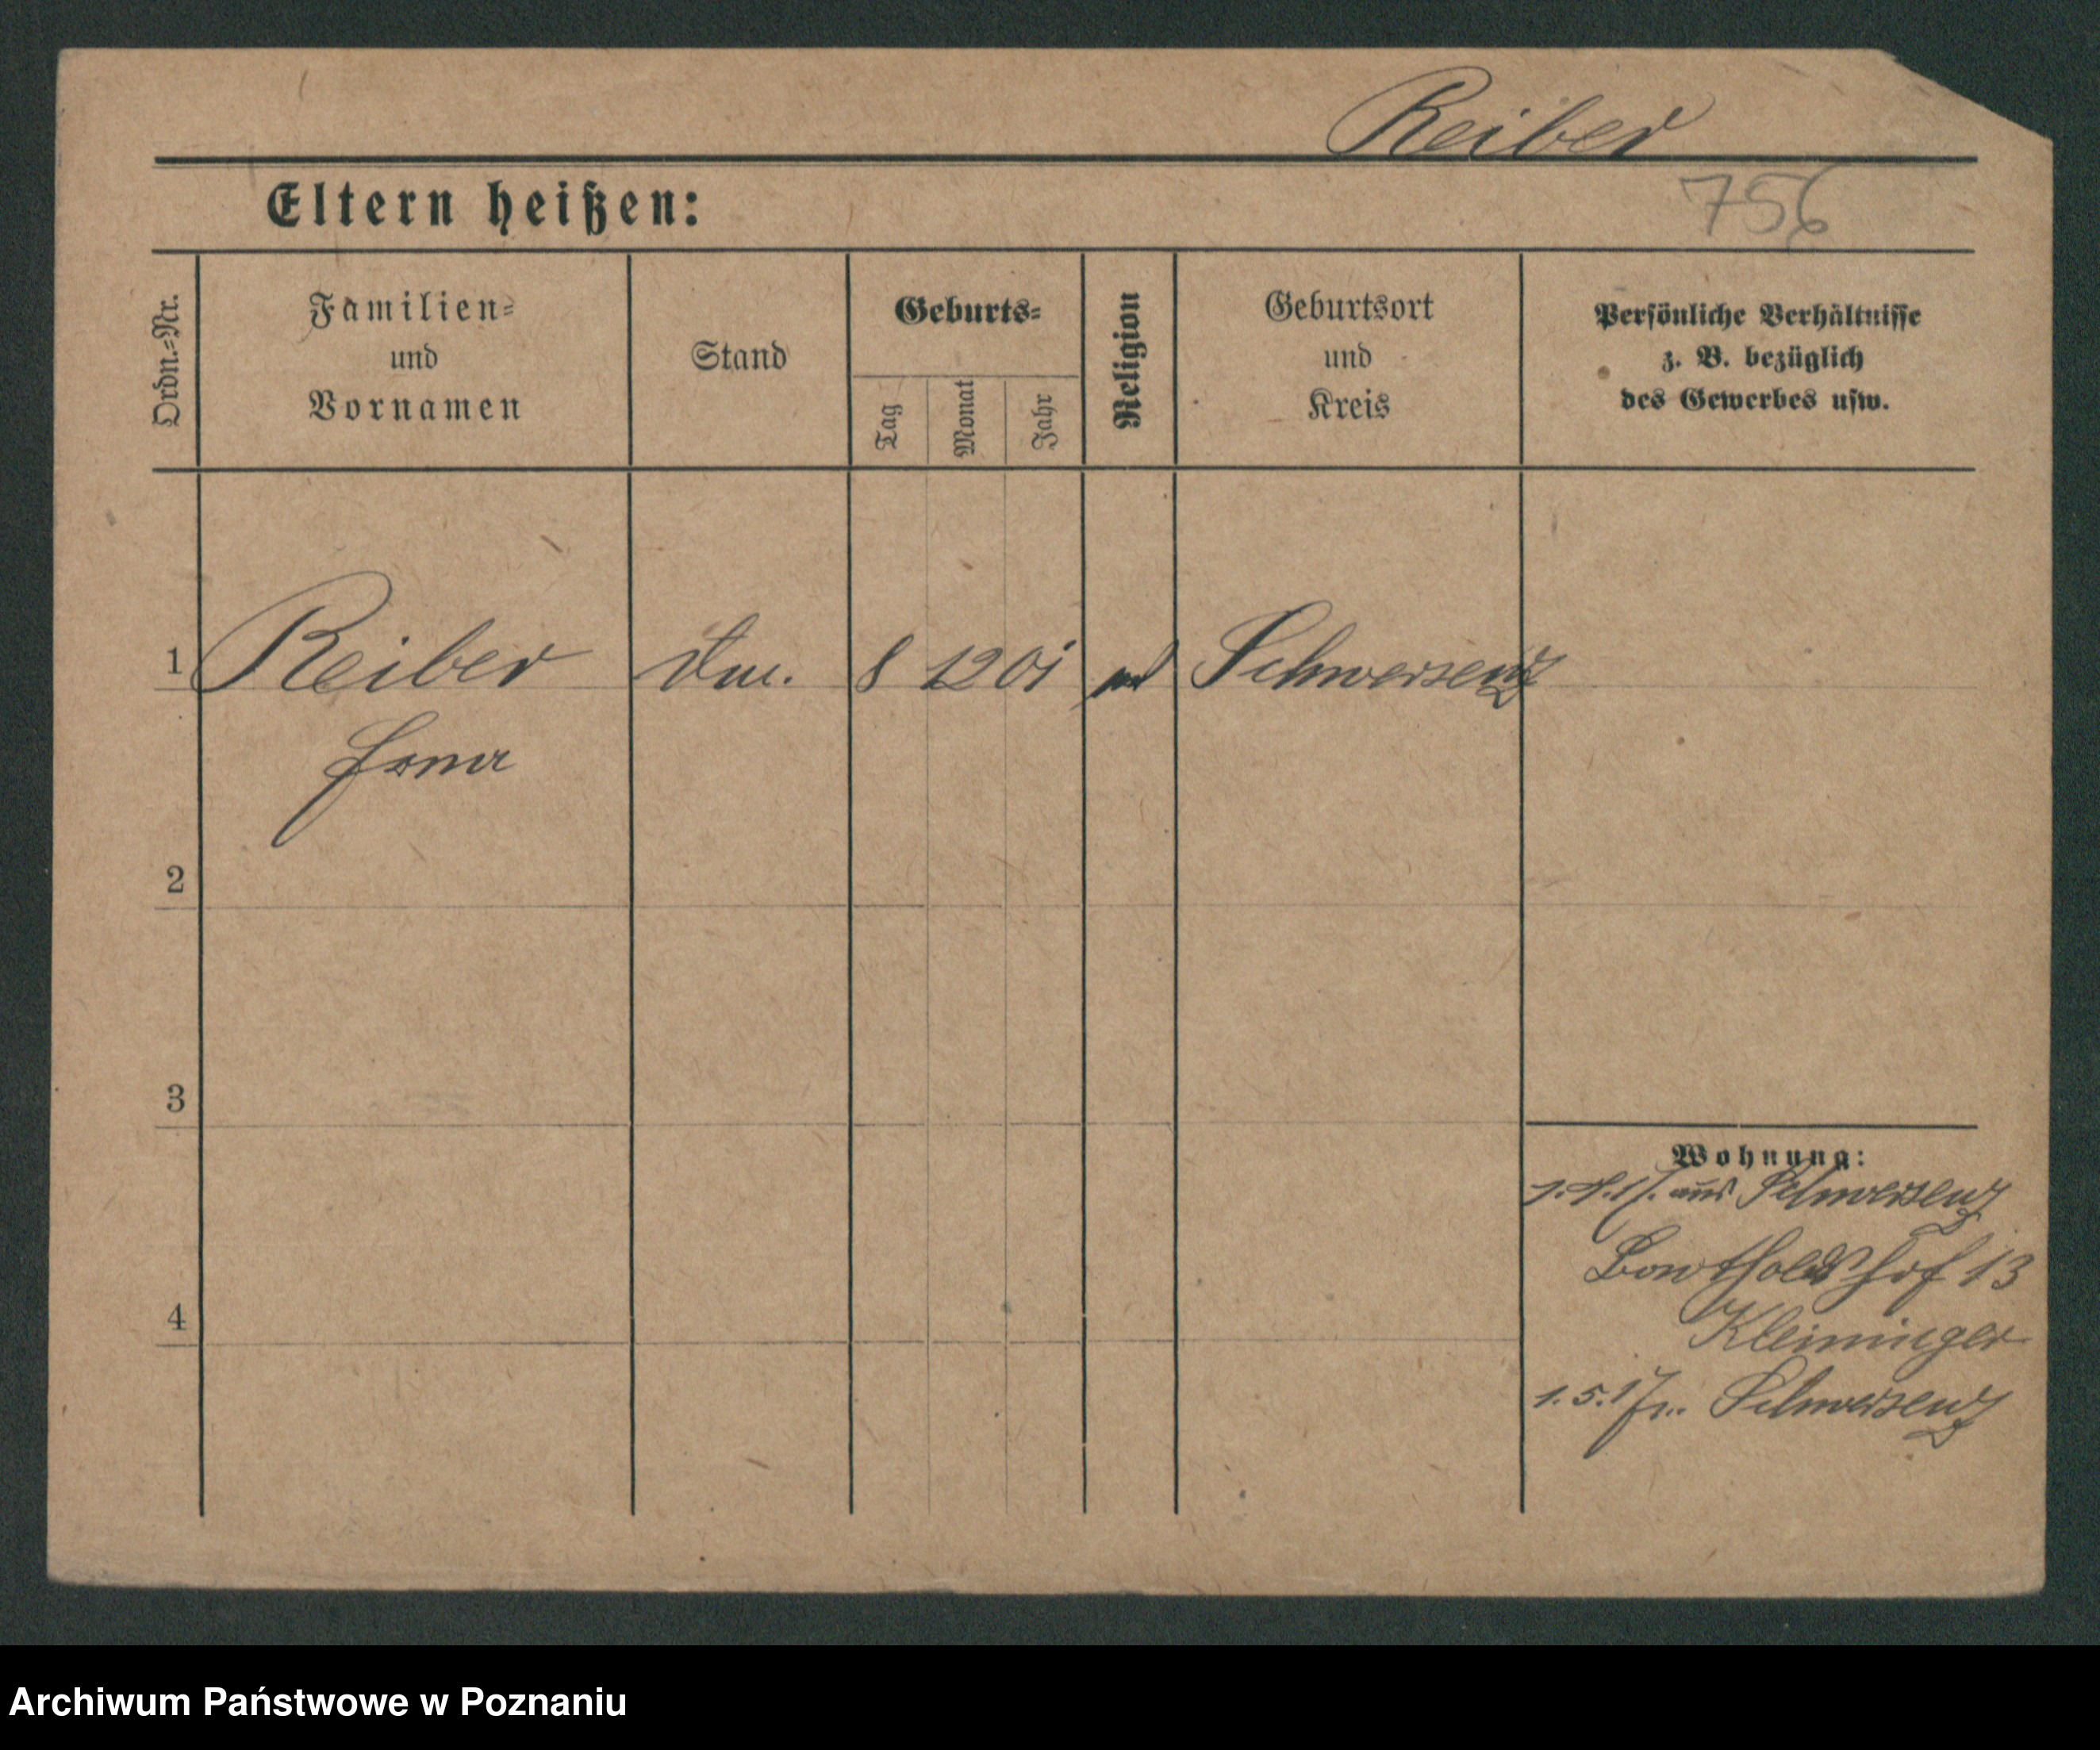 Reiber
Eltern heißen:
756
Ordn.=Nr.
Familien=
und
Vornamen
Stand
Geburts=
Tag
Monat
Jahr
Religion
Geburtsort
und
Kreis
Persönliche Verhältnisse
z. B. bezüglich
des Gewerbes usw.
1 Reiber 8 12 01 Schwersenz
Erna
2
3
4
Wohnung:
aus Schwersenz
hof 13
Kleiminger
1.5.17 Schwersenz
Archiwum Państwowe w Poznaniu